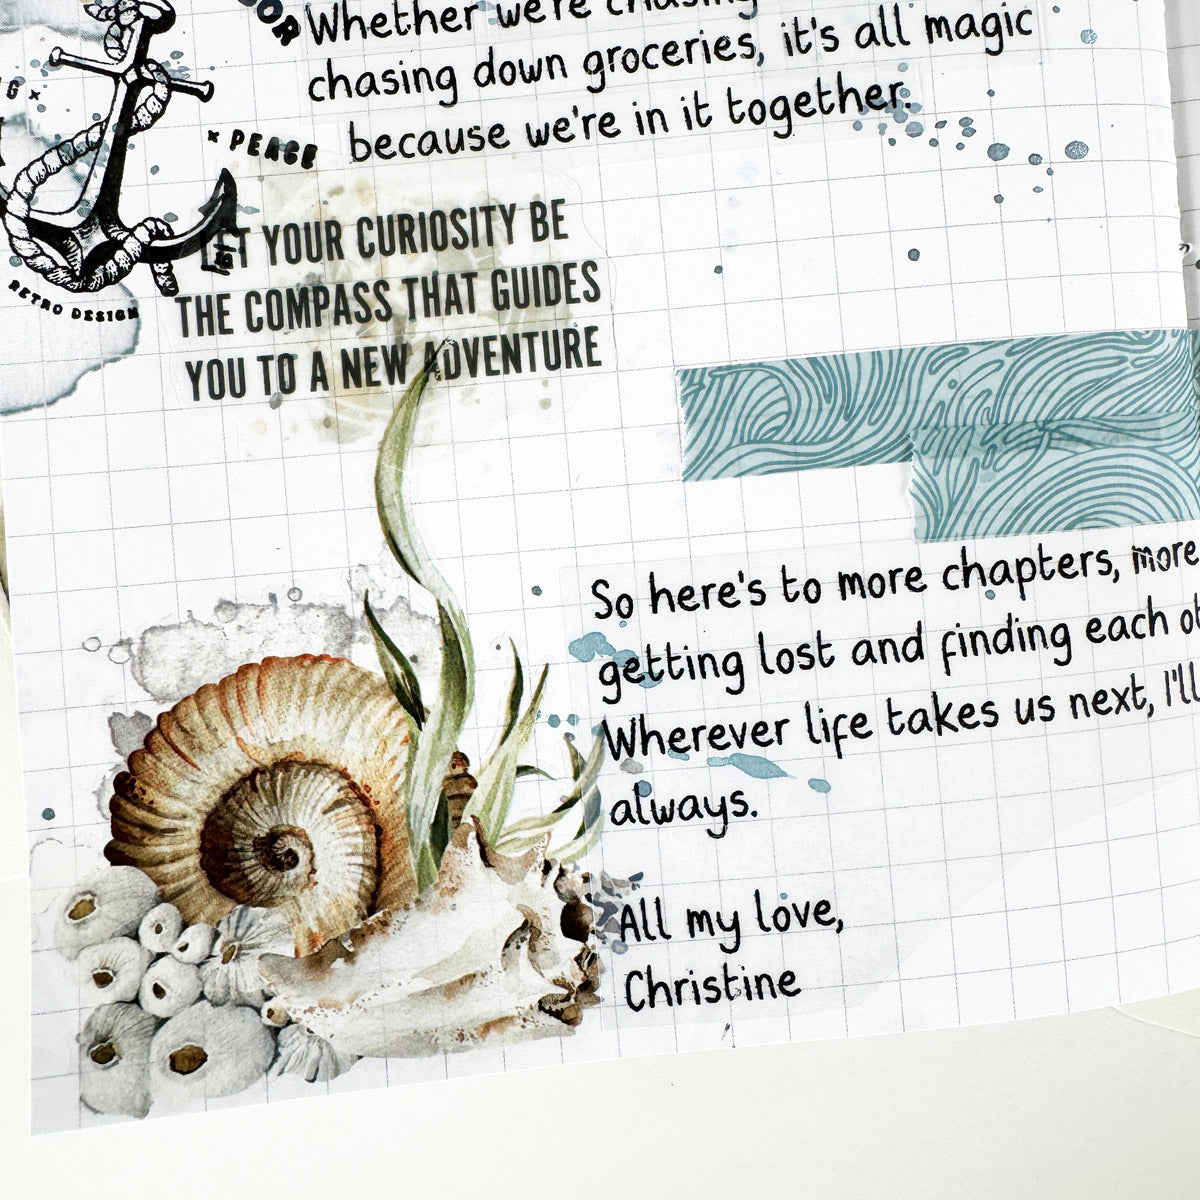 Whether we're chasing
chasing down groceries, it's all magic
because we're in it together.
× PEACE
RETRO DESIGN
LET YOUR CURIOSITY BE
THE COMPASS THAT GUIDES
YOU TO A NEW ADVENTURE
So here's to more chapters, more
getting lost and finding each
Wherever life takes us next, I'll
always.
All my love,
Christine